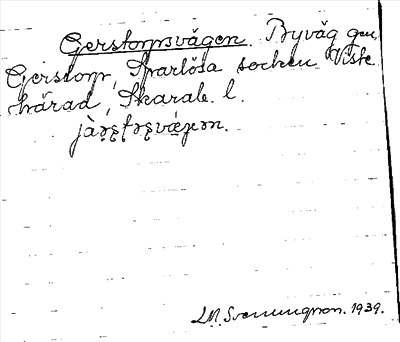 Gerstorpsvägen. Byväg gm
Gerstorp, Sparlösa socken Viste
härad, Skarab. l.
L.M. Svenungsson. 1939.